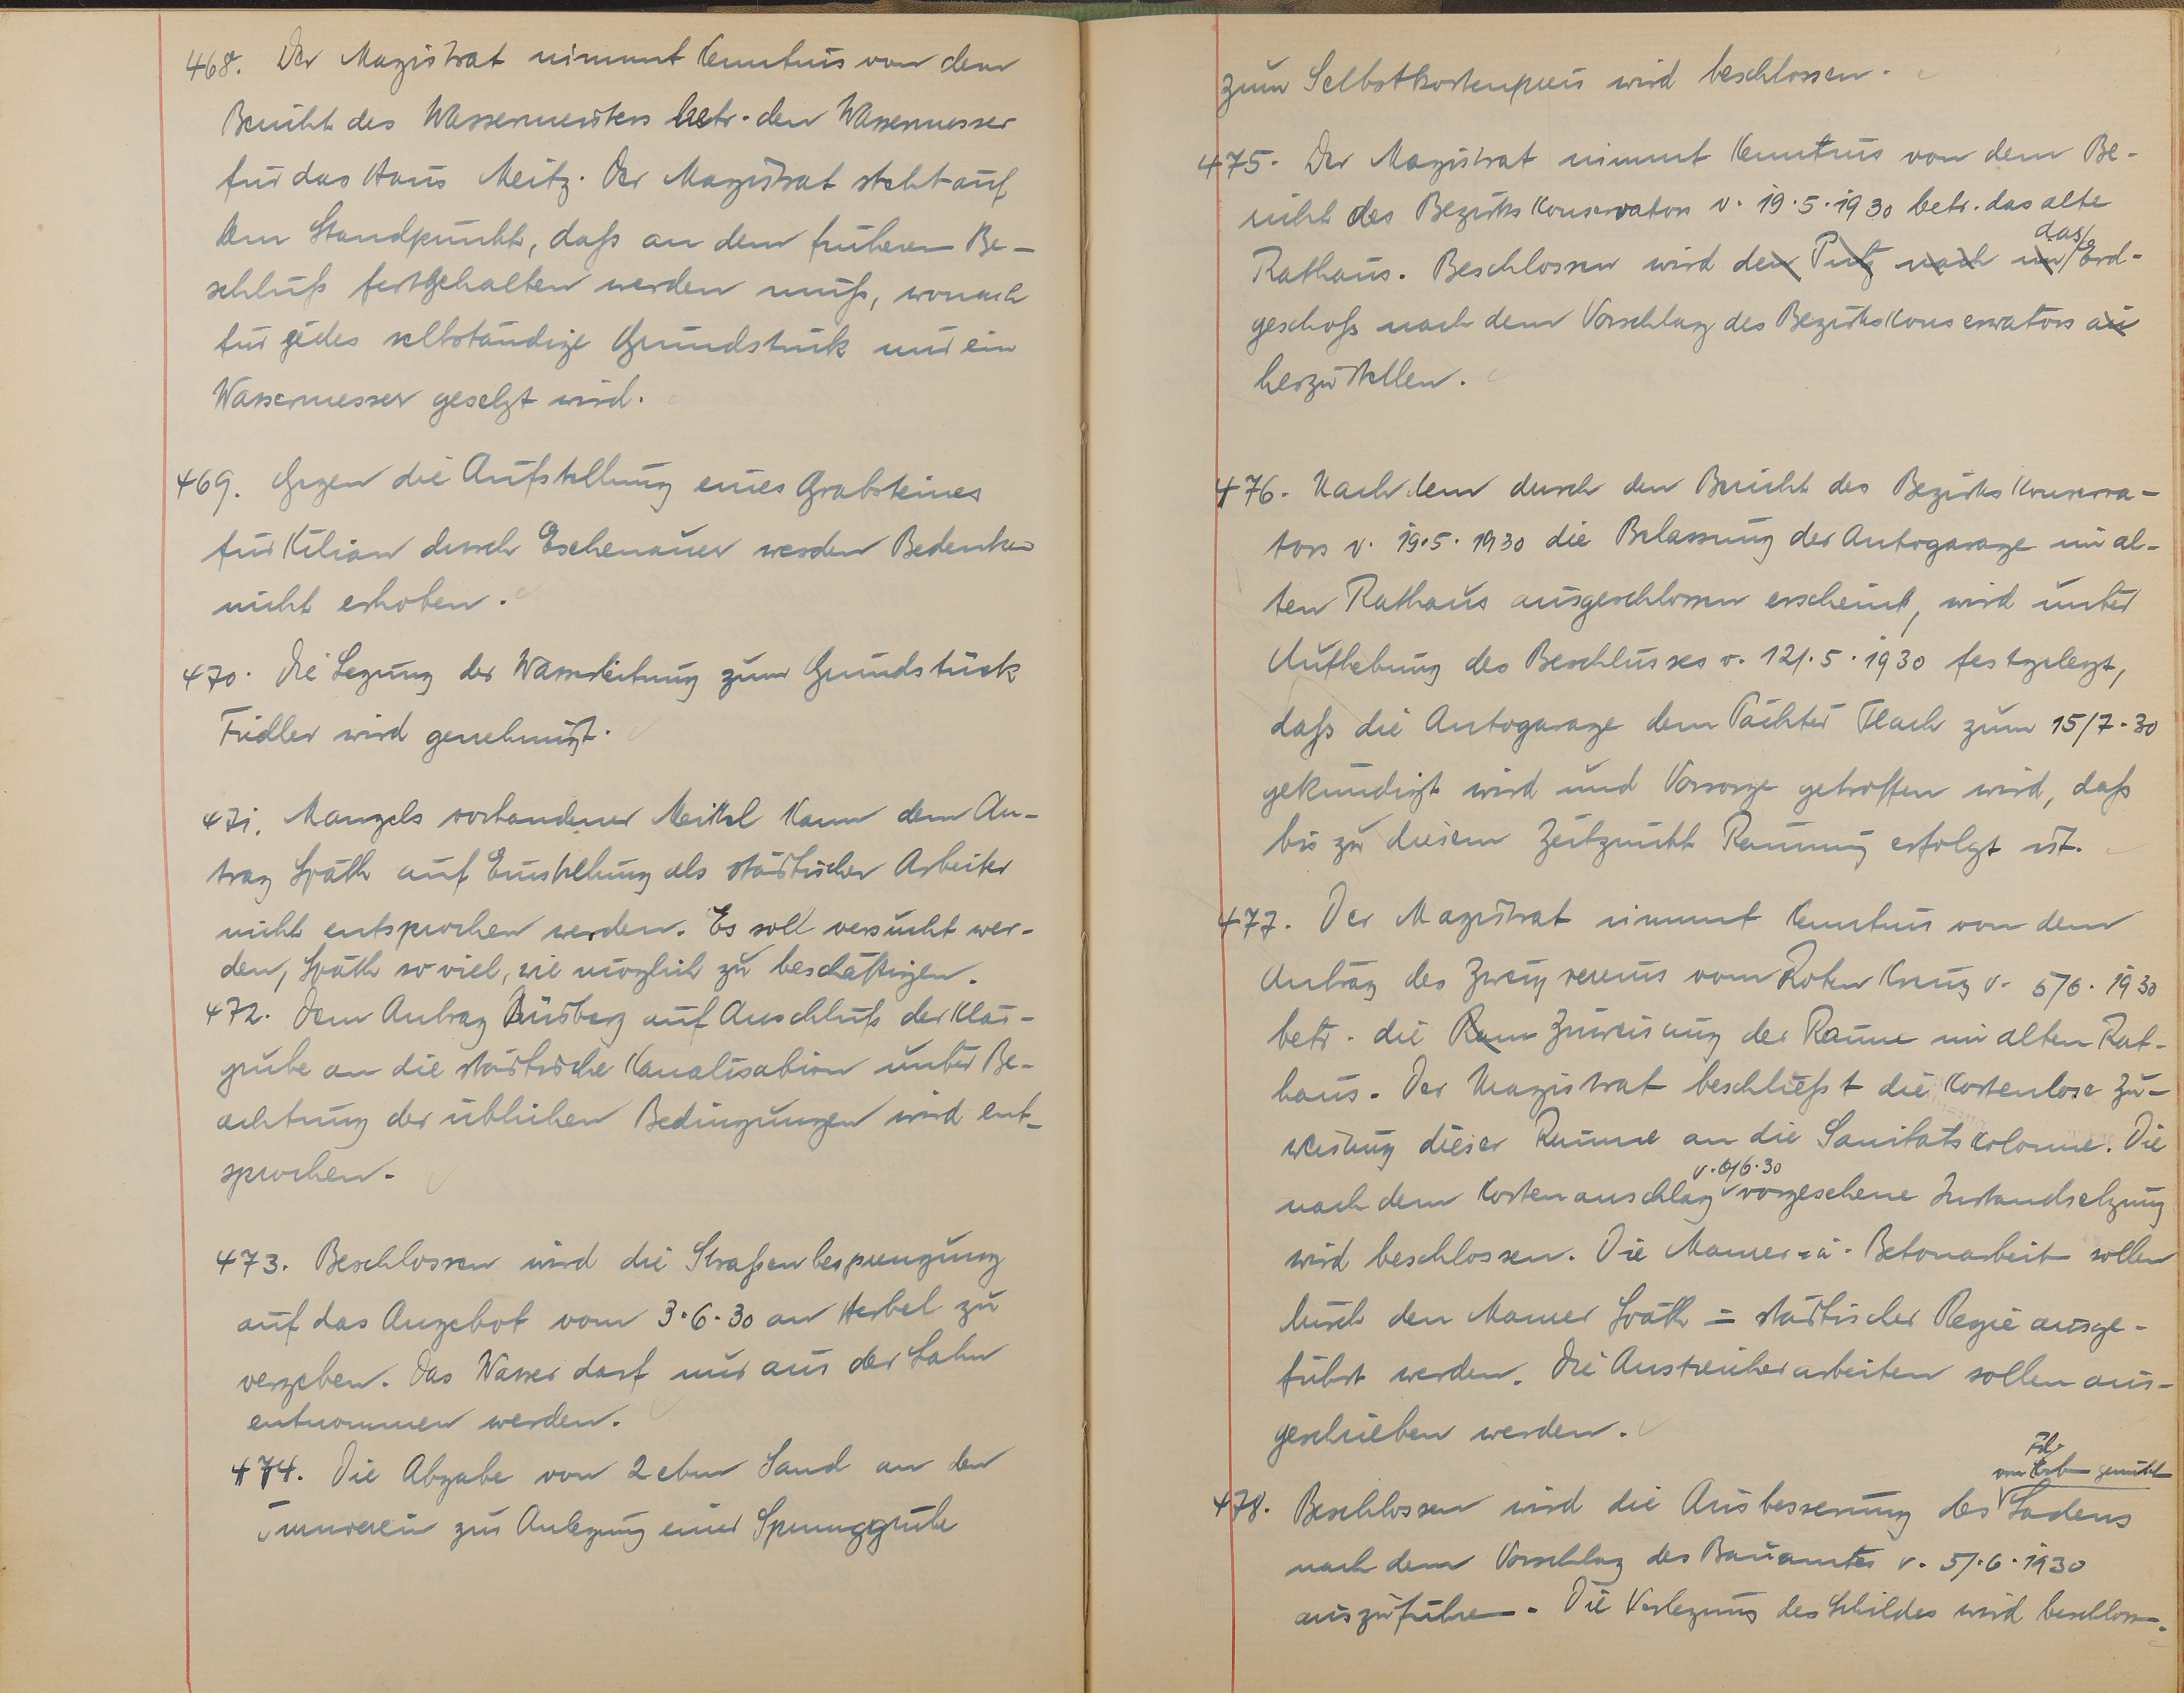 468. Der Magistrat nimmt Kenntnis von dem
Bericht des Wassermeisters betr. den Wassermesser
für das Haus Meitz. Der Magistrat steht auf
dem Standpunkt, daß an dem früheren Be-
schluß festgehalten werden muß, wonach
für jedes selbständige Grundstück nur ein
Wassermesser gesetzt wird.
469. Gegen die Aufstellung eines Grabsteines
für Kilian durch Eschenauer werden Bedenken
nicht erhoben.
470. Die Legung der Wasserleitung zum Grundstück
Fidler wird genehmigt.
471. Mangels vorhandener Mittel kann dem An-
trag Späth auf Einstellung als städtischer Arbeiter
nicht entsprochen werden. Es soll versucht wer-
den, Späth so viel, wie möglich zu beschäftigen.
472. Dem Antrag Büsberg auf Anschluß der Klär-
grube an die städtische Kanalisation unter Be-
achtung der üblichen Bedingungen wird ent-
sprochen.
473. Beschlossen wird die Straßenbesprengung
auf das Angebot vom 3.6.30 an Herbel zu
vergeben. Das Wasser darf nur aus der Lahn
entnommen werden.
474. Die Abgabe von 2 cbm Sand an den
Turnverein zur Anlegung einer Sprunggrube
zum Selbstkostenpreis wird beschlossen.
475. Der Magistrat nimmt Kenntnis von dem Be-
richt des Bezirkskonservators v. 19.5.1930 betr. das alte
das
Rathaus. Beschlossen wird den Putz nach im Erd-
geschoß nach dem Vorschlag des Bezirkskonservators au
herzustellen.
476. Nachdem durch den Bericht des Bezirkskonserva-
tors v. 19.5.1930 die Belassung der Autogarage im al-
ten Rathaus ausgeschlossen erscheint, wird unter
Aufhebung des Beschlusses v. 121.5.1930 festgelegt,
daß die Autogarage dem Pächter Flach zum 15/7.30
gekündigt wird und Vorsorge getroffen wird, daß
bis zu diesem Zeitpunkt Räumung erfolgt ist.
477. Der Magistrat nimmt Kenntnis von dem
Antrag des Zweigvereins vom Roten Kreuz v. 5/6.1930
betr. die Räum Zuweisung der Räume im alten Rat-
haus. Der Magistrat beschließt die kostenlose Zu-
weisung dieser Räume an die Sanitätskolonne. Die
v. 6/6.30
nach dem Kostenanschlag vorgesehene Instandsetzung
wird beschlossen. Die Maurer- u. Betonarbeit sollen
durch den Maurer Späth = städtischer Regie ausge-
führt werden. Die Anstreicherarbeiten sollen aus-
geschrieben werden.
478. Beschlossen wird die Ausbesserung des Ladens
nach dem Vorschlag des Bauamtes v. 5/.6.1930
auszuführen. Die Verlegung des Schildes wird beschlossen.